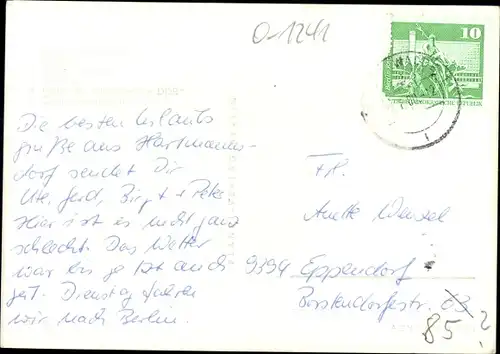 O-1241
10
Die besten Urlaubs
grüße aus Hartmanns-
dorf sendet Dir
Ute, Gerd, Birgit + Peter
Hier ist es nicht ganz
schlecht. Das Wetter
war bis jetzt auch
gut. Dienstag fahren
wir nach Berlin.
Frl.
Anette Wenzel
9394 Eppendorf
Borstendorferstr. 63
85 ?